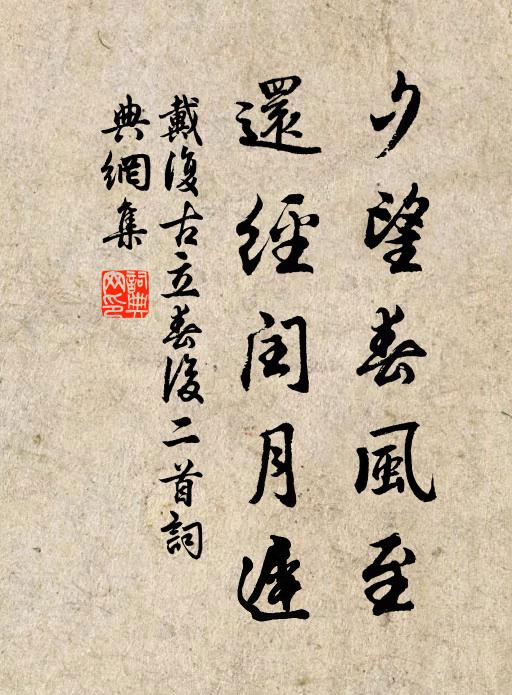 夕望春風至
還經閏月遲
戴復古立春後二首詞
典網集
詞典網印